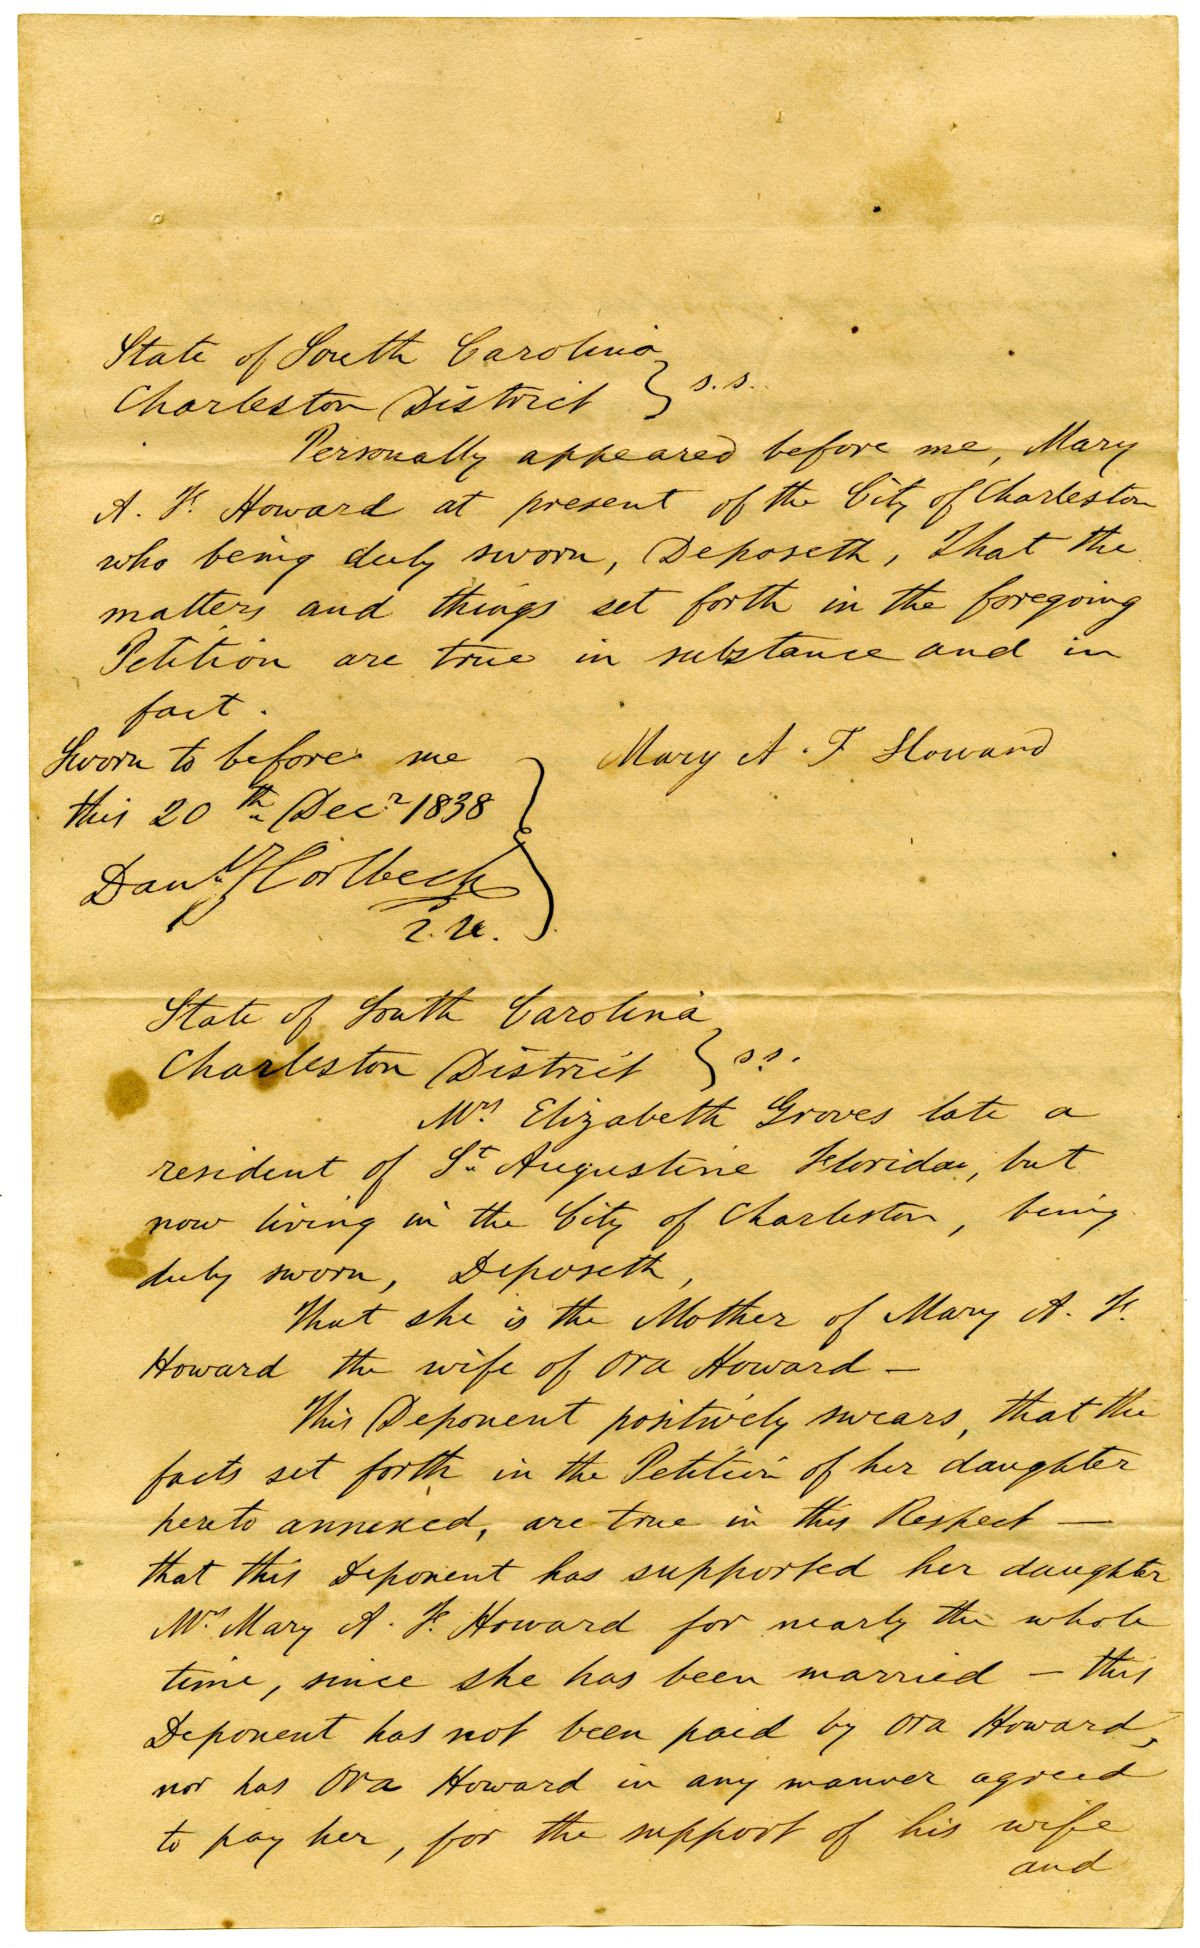 State of South Carolina
Charleston District } s.s.
Personally appeared before me, Mary
A. F. Howard at present of the City of Charleston
who being duly sworn, Deposeth, That the
matters and things set forth in the foregoing
Petition are true in substance and in
fact.
Sworn to before me
this 20th Decr 1838
Mary A. F Howard
Danl Horlbeck
State of South Carolina
Charleston District } s.s.
Mrs Elizabeth Groves late a
resident of St Augustine Florida, but
now living in the City of Charleston, being
duly sworn, Deposeth,
That she is the Mother of Mary A. F.
Howard the wife of Ora Howard —
This Deponent positively swears, that the
facts set forth in the Petition of her daughter
hereto annexed, are true in this Respect —
that this Deponent has supported her daughter
Mrs Mary A. F. Howard for nearly the whole
time, since she has been married — this
Deponent has not been paid by Ora Howard,
nor has Ora Howard in any manner agreed
to pay her, for the support of his wife
and